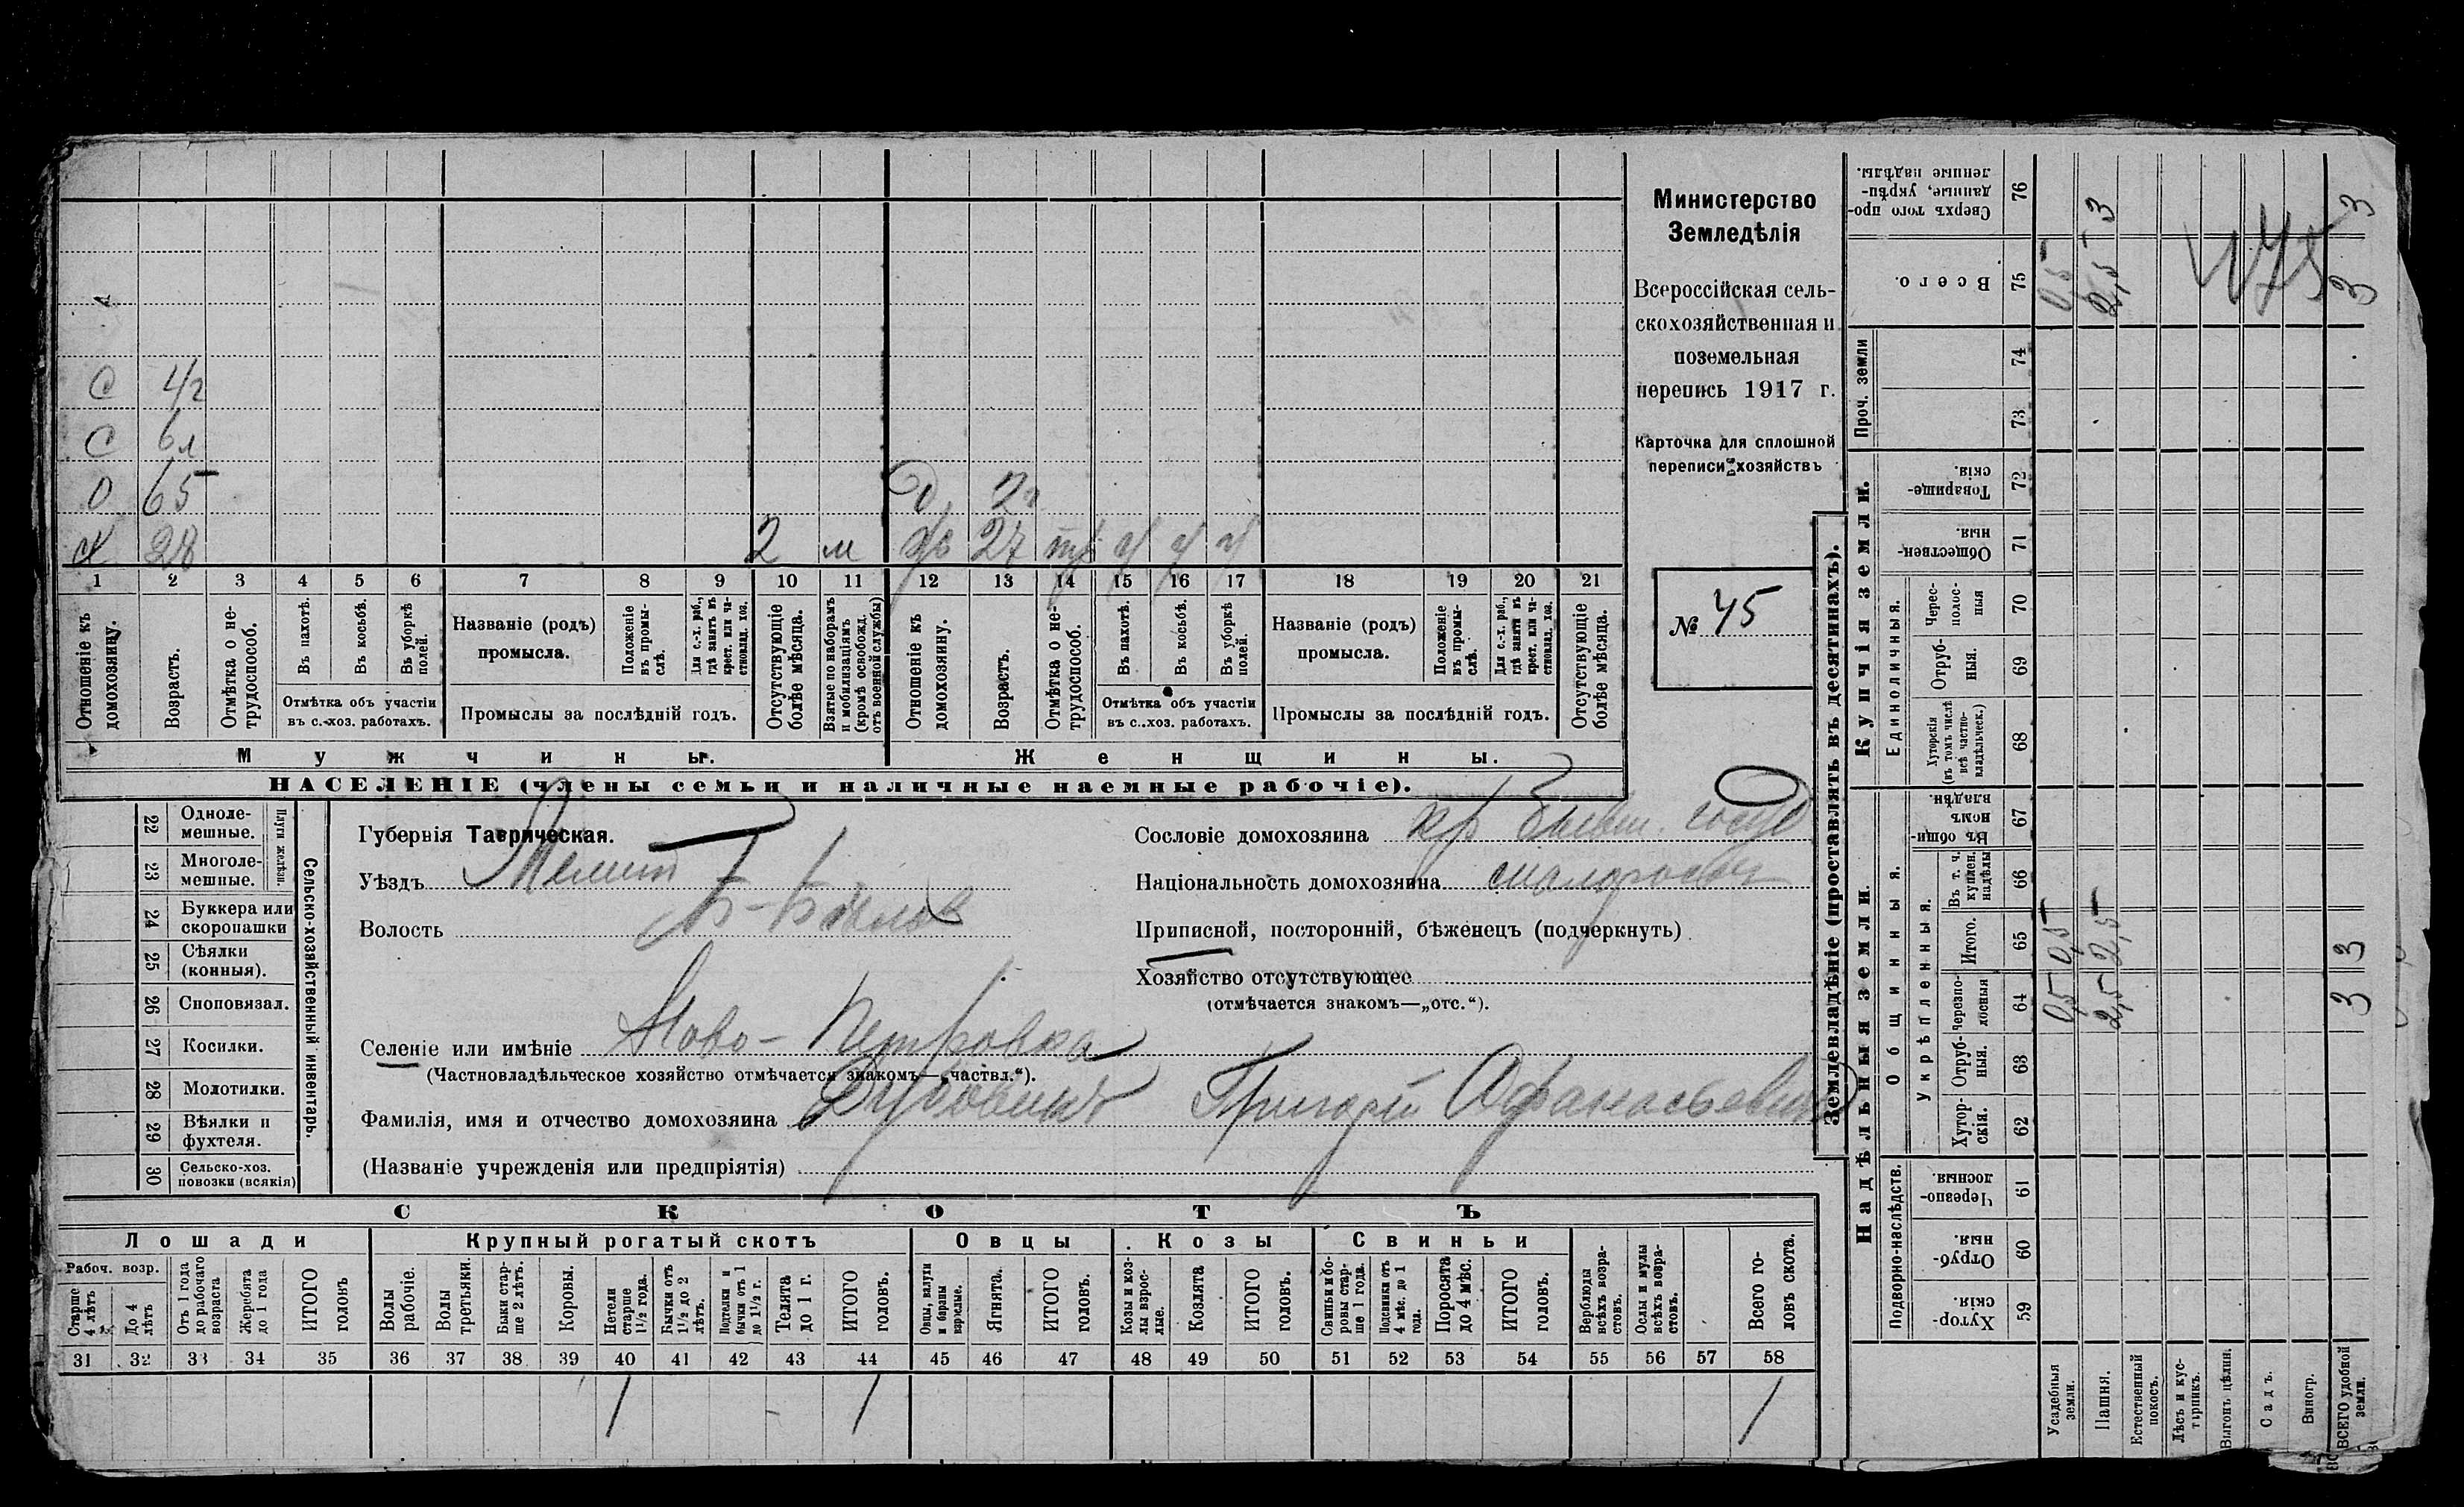 Министерство
Земледѣлія
Всероссійская сель-
скохозяйственная и
поземельная
перепись 1917 г.
Карточка для сплошной
переписи хозяйствъ
№ 45
С 4/г
С 6л
О 65
Х 28 2 м
Д 2г
Ж 27
1 2 3 4 5 6 7 8 9 10 11 12 13 14 15 16 17 18 19 20 21
Отношеніе къ домохозяину.
Возрастъ.
Отмѣтка о не-трудоспособ.
Въ пахотѣ.
Въ косьбѣ.
Въ уборкѣ полей.
Отмѣтка объ участіи
въ с.-хоз. работахъ.
Названіе (родъ)
промысла.
Положеніе въ промы-слѣ.
Для с.-х. раб., гдѣ занятъ въ крест. или ча-стновлад. хоз.
Промыслы за послѣдній годъ.
Отсутствующіе болѣе мѣсяца.
Взятые по наборамъ и мобилизаціямъ (кромѣ освобожд. отъ военной службы)
Отношеніе къ домохозяину.
Возрастъ.
Отмѣтка о не-трудоспособ.
Въ пахотѣ.
Въ косьбѣ.
Въ уборкѣ полей.
Отмѣтка объ участіи
въ с.-хоз. работахъ.
Названіе (родъ)
промысла.
Положеніе въ промы-слѣ.
Для с.-х. раб., гдѣ заняты въ крест. или ча-стновлад. хоз.
Промыслы за послѣдній годъ.
Отсутствующіе болѣе мѣсяца.
Мужчины. Женщины.
НАСЕЛЕНІЕ (члены семьи и наличные наемные рабочіе).
22 Одноле-мешные.
23 Многоле-мешные.
Плуги желѣзн.
24 Буккера или скоропашки
25 Сѣялки (конныя).
26 Сноповязал.
27 Косилки.
28 Молотилки.
29 Вѣялки и фухтеля.
30 Сельско-хоз. повозки (всякія)
Сельско-хозяйственный инвентарь.
Губернія Таврическая.
Уѣздъ Мелит
Волость Б-Бѣлоз
Селеніе или имѣніе Ново-Петровка
(Частновладѣльческое хозяйство отмѣчается знакомъ—„частвл.“).
Фамилія, имя и отчество домохозяина Дубовикъ Григорій Афанасьевичъ
(Названіе учрежденія или предпріятія)
Сословіе домохозяина кр бывш. госуд
Національность домохозяина малороссъ
Приписной, посторонній, бѣженецъ (подчеркнуть)
Хозяйство отсутствующее
(отмѣчается знакомъ—„отс.“).
СКОТЪ
Лошади Крупный рогатый скотъ Овцы Козы Свиньи
Рабоч. возр.
Старше 4 лѣтъ
До 4 лѣтъ
Отъ 1 года до рабочаго возраста
Жеребята до 1 года
ИТОГО головъ
Волы рабочіе.
Волы третьяки.
Быки стар-ше 2 лѣтъ.
Коровы.
Нетели старше 1½ года.
Бычки отъ 1½ до 2 лѣтъ.
Подтелки и бычки отъ 1 до 1½ г.
Телята до 1 г.
ИТОГО головъ.
Овцы, валухи и бараны взрослые.
Ягнята.
ИТОГО головъ.
Козы и коз-лы взрос-лые.
Козлята
ИТОГО головъ.
Свиньи и бо-ровы стар-ше 1 года.
Подсвинки отъ 4 мѣс. до 1 года.
Поросята до 4 мѣс.
ИТОГО головъ.
Верблюды всѣхъ возра-стовъ.
Ослы и мулы всѣхъ возра-стовъ.
Всего го-ловъ скота.
31 32 33 34 35 36 37 38 39 40 41 42 43 44 45 46 47 48 49 50 51 52 53 54 55 56 57 58
1 1 1
Землевладѣніе (проставлять въ десятинахъ).
Надѣльныя земли.
Купчія земли.
Проч. земли
Подворно-наслѣдств.
Общинныя.
Укрѣпленныя.
Единоличныя.
Хутор-скія. 59
Отруб-ныя. 60
Черезпо-лосныя. 61
Хутор-скія. 62
Отруб-ныя. 63
Черезпо-лосныя 64 0,5 2,5 3
Итого. 65 0,5 2,5 3
Въ т. ч. куплен. надѣлы 66
Въ общин-номъ владѣн. 67
Хуторскія (въ томъ числѣ всѣ частно-владѣльческ.) 68
Отруб-ныя. 69
Черес-полос-ныя 70
Обществен-ныя 71
Товарище-скія. 72
73
74
Всего. 75 0,5 2,5 3
Сверхъ того про-данные, укрѣп-ленные надѣлы. 76 3 3
№45
Усадебныя земли.
Пашня.
Естественный покосъ.
Лѣсъ и кус-тарникъ.
Выгонъ цѣлин.
Садъ.
Виногр.
ВСЕГО удобной земли.